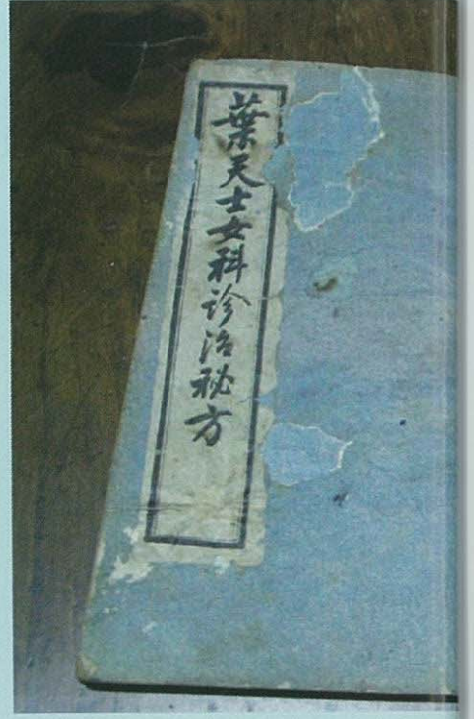 葉天士女科诊治秘方